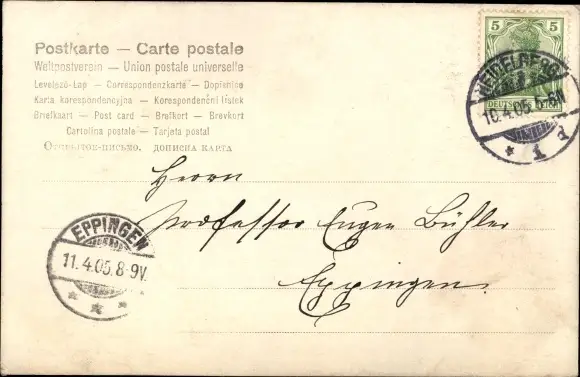 Postkarte — Carte postale
Weltpostverein — Union postale universelle
Levelező-Lap — Correspondenzkarte — Dopisnice
Karta korespondencyjna — Korespondenční listek
Briefkaart — Post card — Brefkort — Brevkort
Cartolina postale — Tarjeta postal
Открытое-письмо, дописна карта
5 5
DEUTSCHES REICH
HEIDELBERG
10.4.05.5-6N
* 1 d
Herrn
Professor Eugen Bühler
Eppingen.
EPPINGEN
11.4.05.8-9V.
* * *